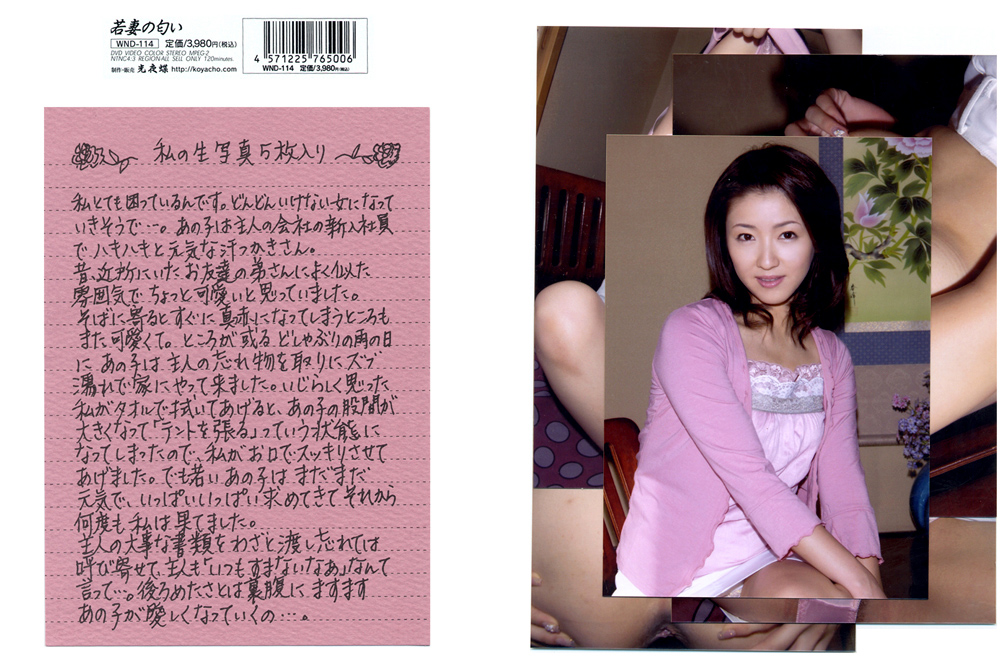 若妻の匂い
WND-114 定価/3,980円(税込)
DVD VIDEO COLOR STEREO MPEG-2
NTNC4:3 REGION-ALL SELL ONLY 120minutes.
制作・販売 光夜蝶 http://koyacho.com
4 571225 765006
WND-114 定価/3,980円(税込)
私の生写真5枚入り
私とても困っているんです。どんどんいけない女になって
いきそうで…。あの子は主人の会社の新入社員
で、ハキハキと元気な汗っかきさん。
昔、近所にいたお友達の弟さんによく似た
雰囲気で、ちょっと可愛いと思っていました。
そばに寄るとすぐに真赤になってしまうところも
また可愛くて。ところが或るどしゃぶりの雨の日
に、あの子は、主人の忘れ物を取りにズブ
濡れで家にやって来ました。いじらしく思った
私がタオルで拭いてあげると、あの子の股間が
大きくなって「テントを張る」っていう状態に
なってしまったので、私がお口でスッキリさせて
あげました。でも若いあの子は まだまだ
元気で、いっぱいいっぱい求めてきて それから
何度も私は果てました。
主人の大事な書類をわざと渡し忘れては
呼び寄せて、主人も「いつもすまないなあ」なんて
言って…。後ろめたさとは裏腹に ますます
あの子が愛しくなっていくの…。